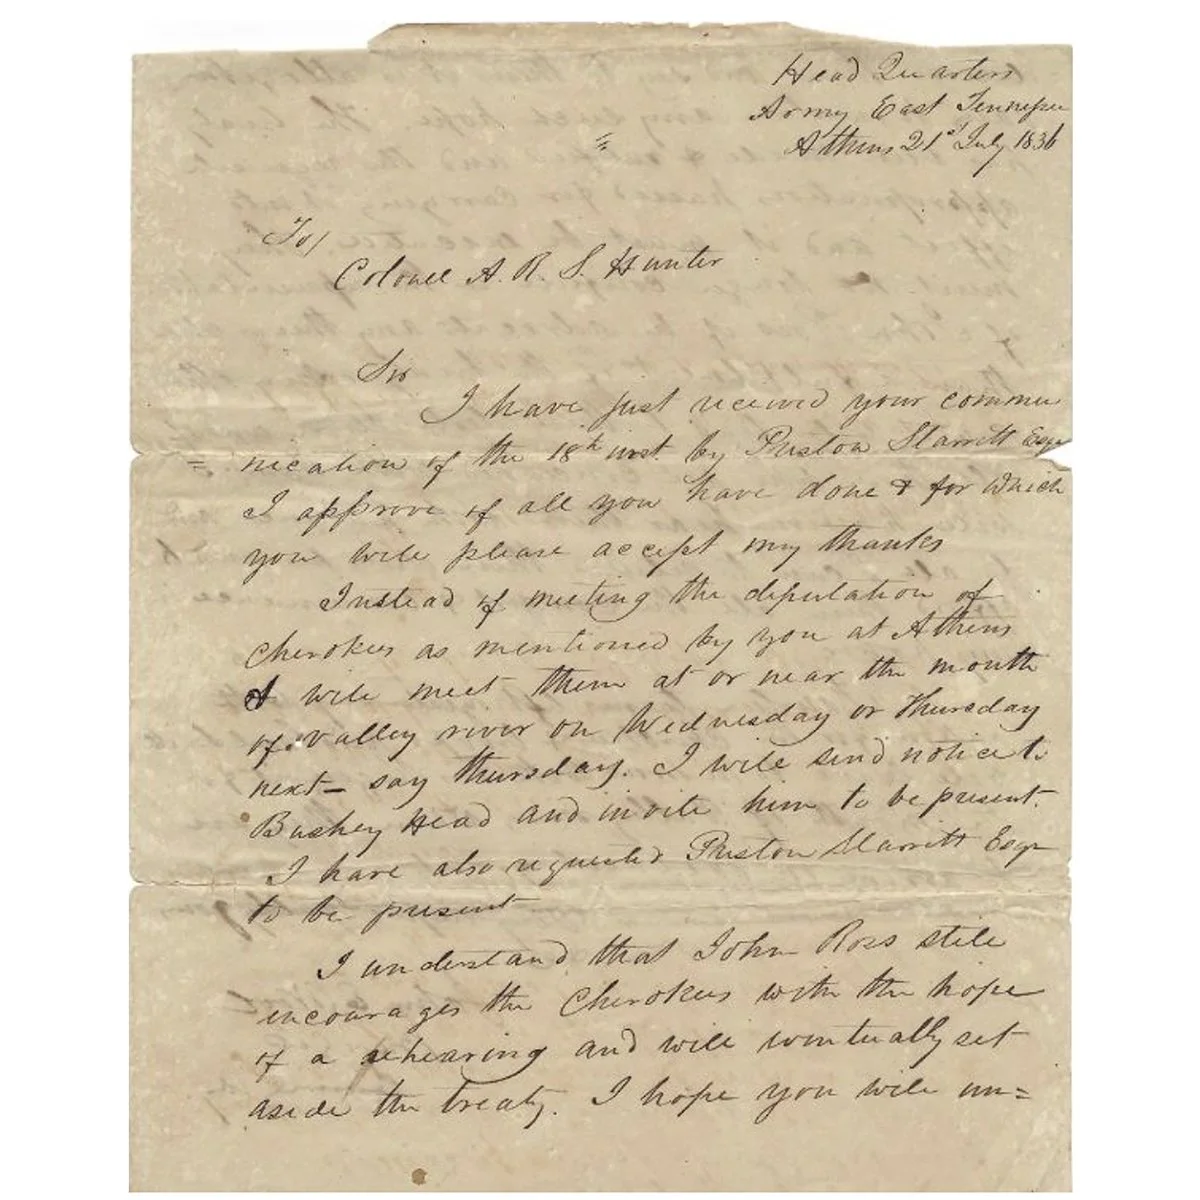 Head Quarters
Army East Tennessee
Athens 21st July 1836
To/
Colonel A. R. S. Hunter
Sir
I have just received your commu
nication of the 18th inst. by Preston Starritt Esqr
I approve of all you have done & for which
you will please accept my thanks
Instead of meeting the deputation of
Cherokees as mentioned by you at Athens
I will meet them at or near the mouth
of Valley river on Wednesday or Thursday
next – say Thursday. I will send notice to
Bushey Head and invite him to be present.
I have also requested Preston Starritt Esqr
to be present
I understand that John Ross still
encourages the Cherokees with the hope
of a rehearing and will eventually set
aside the treaty. I hope you will un=